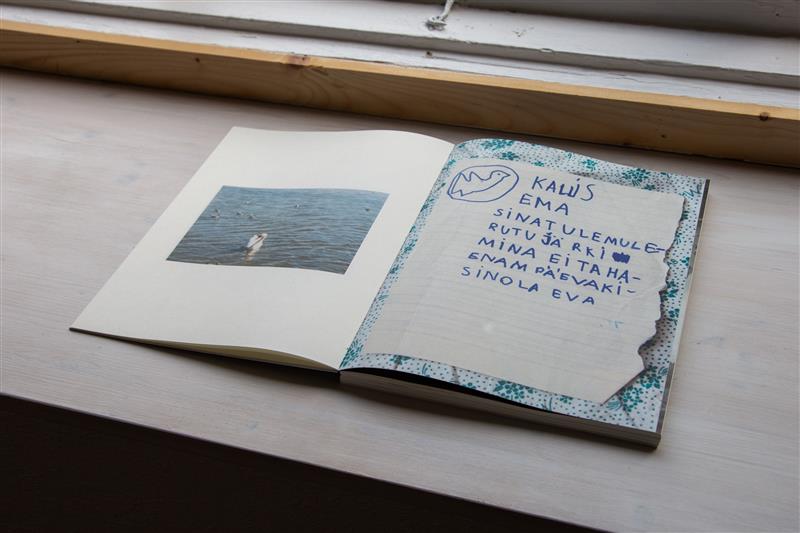 KALLIS
EMA
SINATULEMULE-
RUTU JÄRKI
MINA EI TAHA-
ENAM PÄEVAKI-
SINOLA EVA